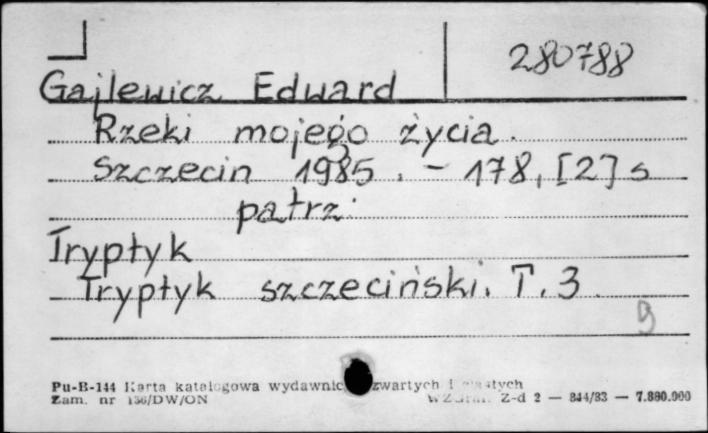 280788
Gajlewicz Edward
Rzeki mojego życia.
Szczecin 1985. - 178, [2] s
patrz:
Tryptyk
Tryptyk szczeciński. T. 3
Pu-B-144 Karta katalogowa zwartych i
Zam. nr 156/DW/ON Z-d 2 — 844/83 — 7.880.000